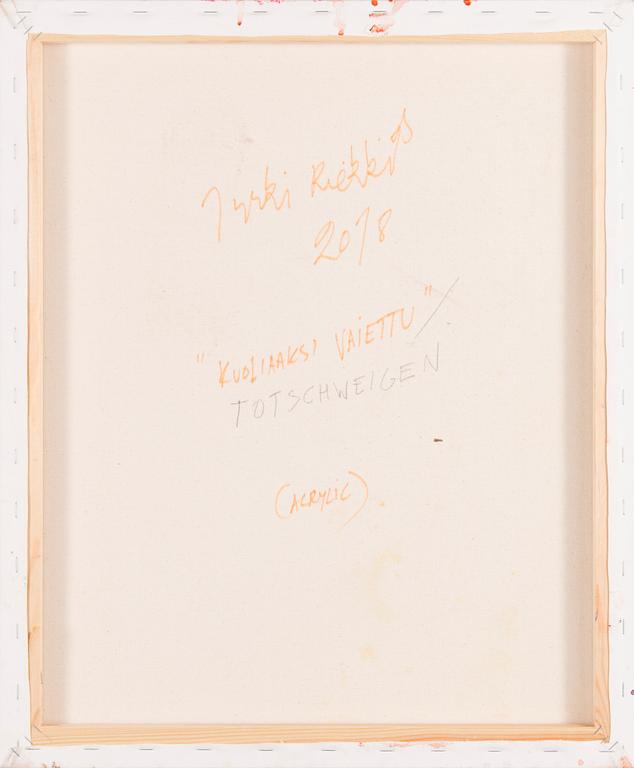 Jyrki Riekki
2018
"KUOLIAAKSI VAIETTU" /
TOTSCHWEIGEN
(ACRYLIC)